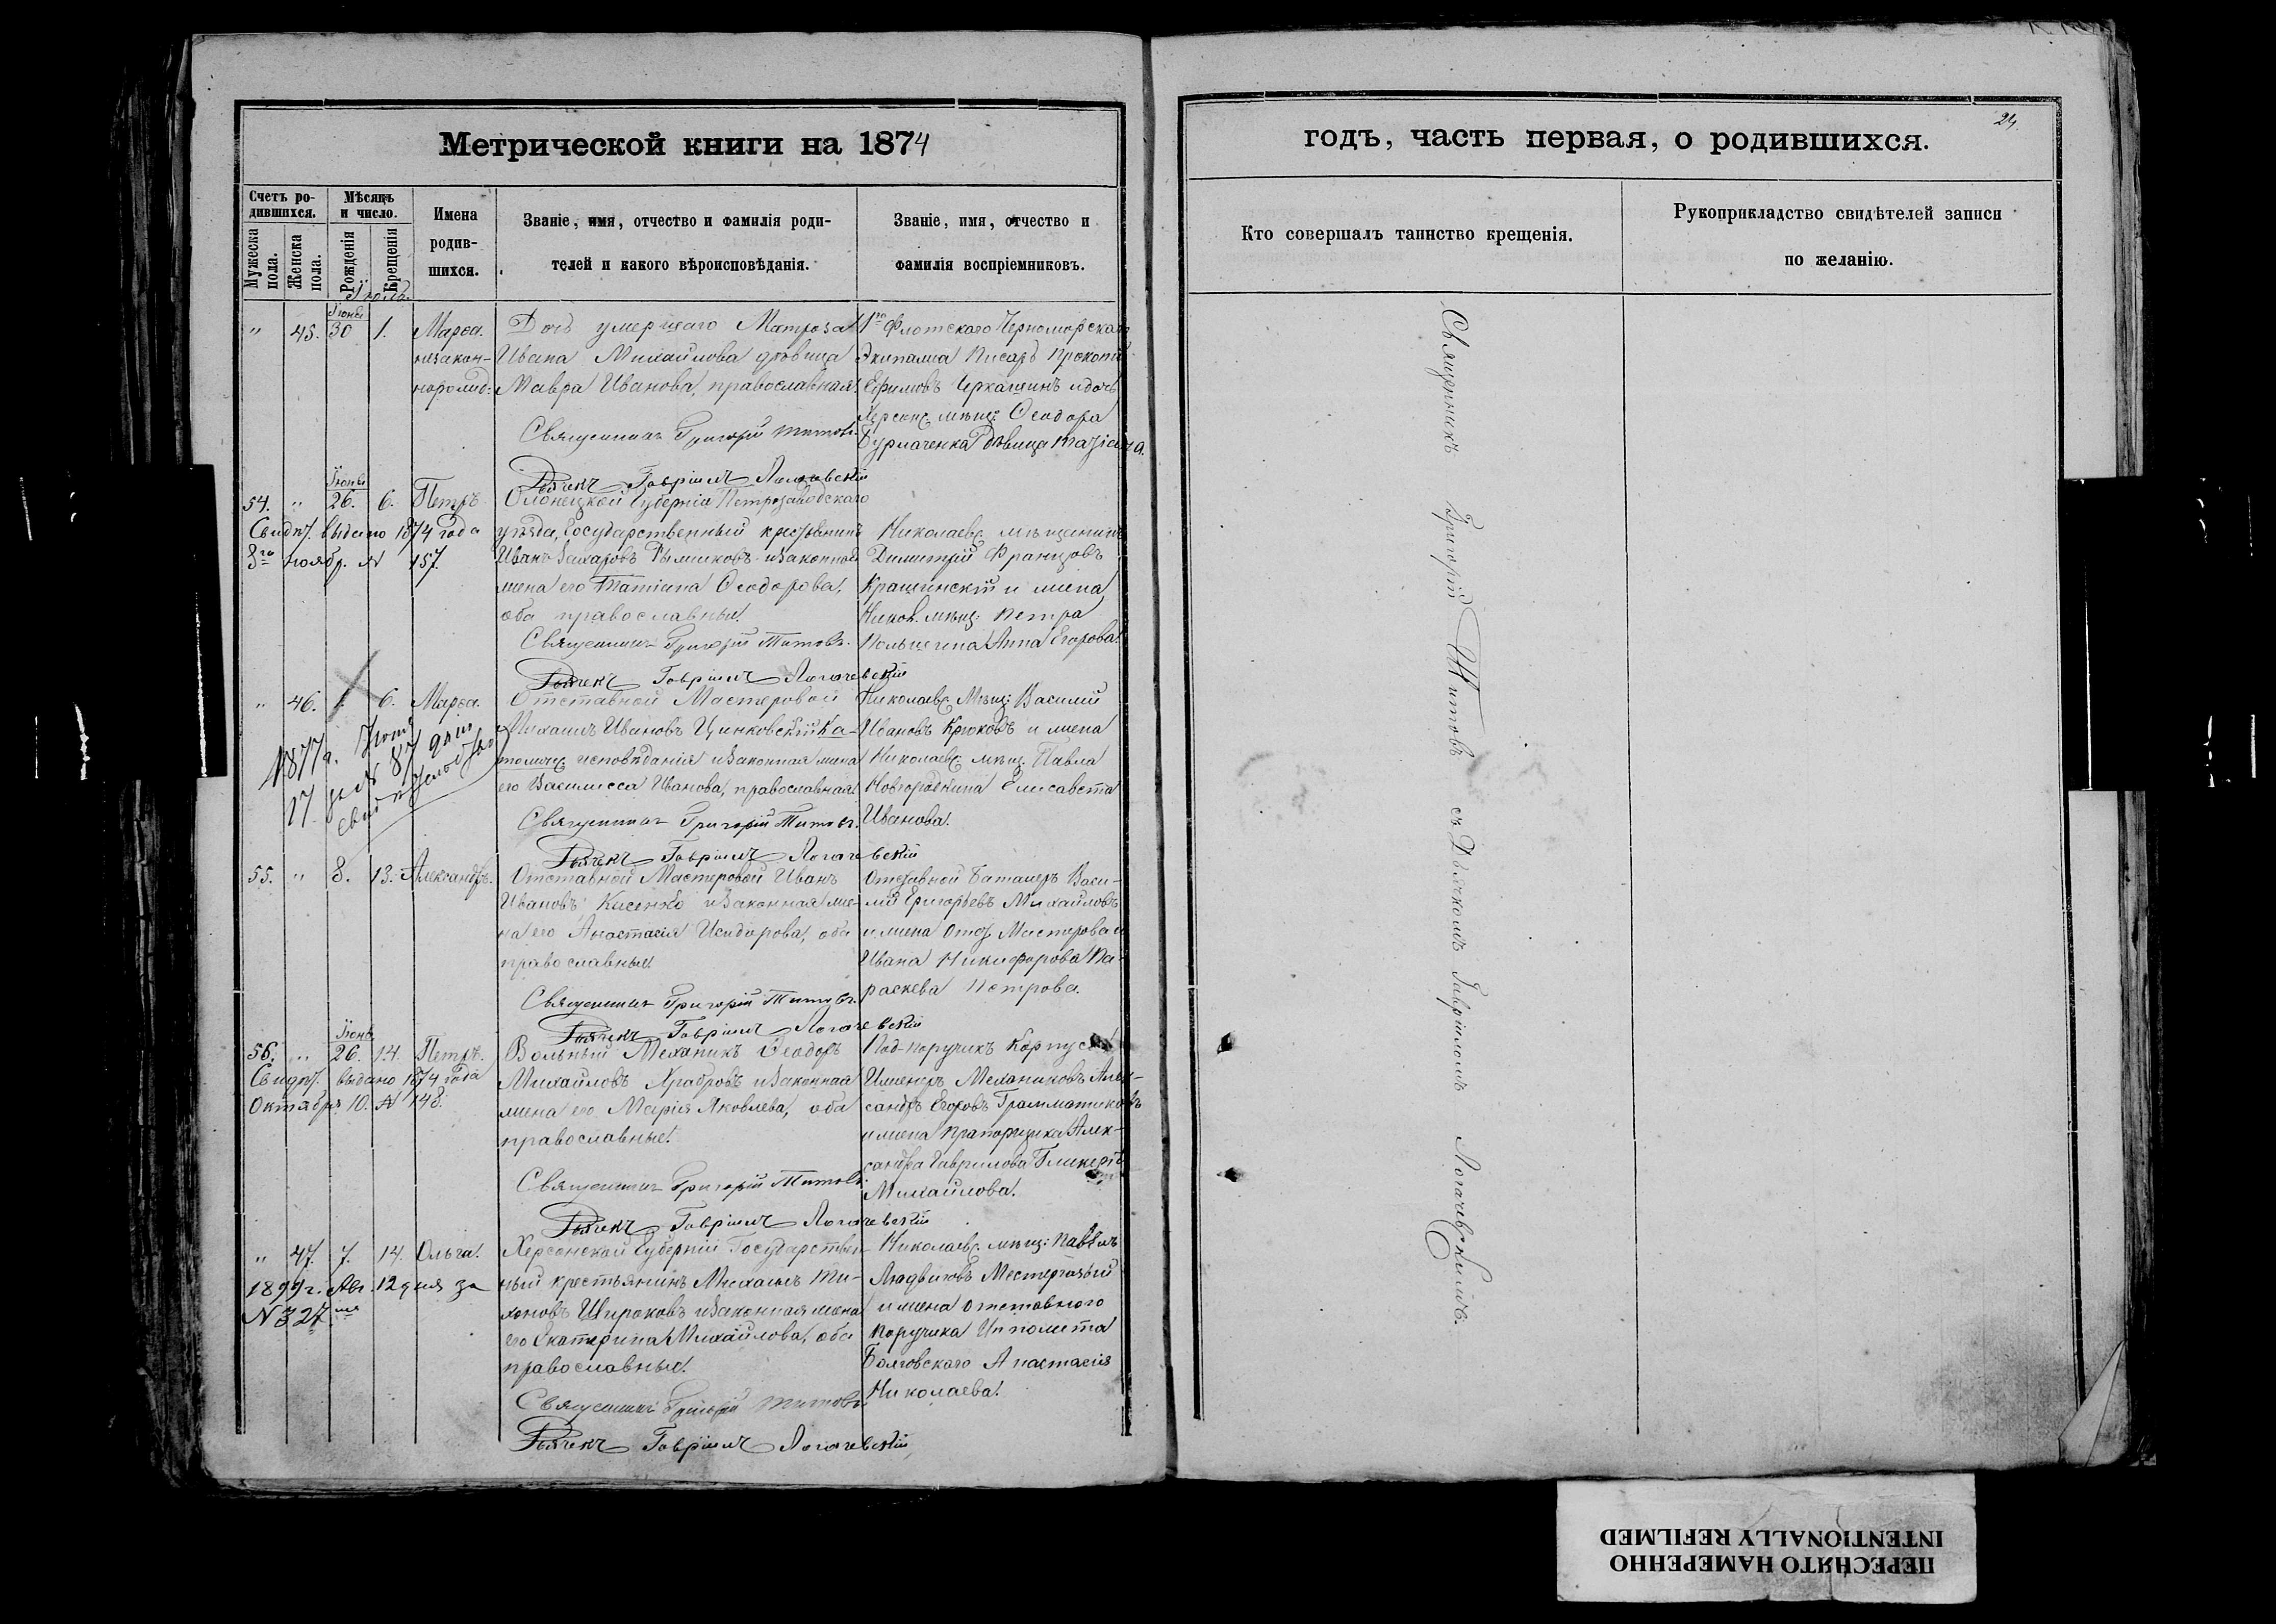 Метрической книги на 1874
Счетъ ро-
дившихся.
Мужеска пола.
Женска пола.
Мѣсяцъ
и число.
Рожденія
Крещенія
Имена
родив-
шихся.
Званіе, имя, отчество и фамилія роди-
телей и какого вѣроисповѣданія.
Званіе, имя, отчество и
фамилія воспріемниковъ.
Іюль.
Іюнь
" 45. 30 1. Марѳа.
незакон-
норожд:
Дочь умершаго Матроза
Ивана Михайлова дѣвица
Мавра Иванова, православная.
Священникъ Григорій Титовъ.
Дьячекъ Гавріилъ Логачевскій
1го Флотскаго Черноморскаго
Экипажа Писарь Прокопій
Ефимовъ Черкашинъ и дочь
Херсонс. мѣщ: Ѳеодора
Бурлаченка дѣвица Татіана.
Іюнь
54. " 26. 6. Петръ
Свидѣт. выдано 1874 года
8го ноябр. № 157.
Олонецкой Губерніи Петрозаводскаго
уѣзда, Государственный крестьянинъ
Иванъ Захаровъ и законная
жена его Татіана Ѳеодорова,
оба православные.
Священникъ Григорій Титовъ.
Дьячекъ Гавріилъ Логачевскій
Николаевс. мѣщанинъ
Димитрій Францовъ
Крашинскій и жена
Никол. мѣщ: Петра
Анна Егорова.
" 46. 1. 6. Марѳа.
1877 г.
17 за № 87 дано
свидѣтельство
Отставной Мастеровой
Михаилъ Ивановъ Цинковскій Ка-
толичес. исповѣданія и законная жена
его Василисса Иванова, православная.
Священникъ Григорій Титовъ.
Дьячекъ Гавріилъ Логачевскій
Николаевс. Мѣщ: Василій
Ивановъ Крюковъ и жена
Николаевс. мѣщ. Павла
Елисавета
Иванова.
55. " 8. 13. Александръ.
Отставной Мастеровой Иванъ
Ивановъ Кисенко и законная же-
на его Анастасія Исидорова, оба
православные.
Священникъ Григорій Титовъ.
Дьячекъ Гавріилъ Логачевскій
Отставной Баталеръ Васи-
лій Григорьевъ Михайловъ
и жена Отст. Мастероваго
Ивана Никифорова Па-
раскева Петрова.
Іюнь
56. " 26. 14. Петръ.
Свидѣт. выдано 1874 года
Октябр. 10. № 148.
Вольный Механикъ Ѳеодоръ
Михайловъ Храбровъ и законная
жена его Марія Яковлева, оба
православные.
Священникъ Григорій Титовъ.
Дьячекъ Гавріилъ Логачевскій
Под-поручикъ Корпуса
Инженеръ Механиковъ Алек-
сандръ Егоровъ Грамматиковъ
и жена Прапорщика Алек-
сандра Гаврилова Гликерія
Михайлова.
" 47. 7. 14. Ольга.
1899 г. Авг. 12 дня за
№ 327
Херсонской Губерніи Государствен-
ный крестьянинъ Михаилъ Ти-
хоновъ Широковъ и законная жена
его Екатерина Михайлова, оба
православные.
Священникъ Григорій Титовъ.
Дьячекъ Гавріилъ Логачевскій
Николаевс. мѣщ: Павелъ
Людвиговъ
и жена отставного
Поручика Ипполита
Анастасія
Николаева.
24.
годъ, часть первая, о родившихся.
Кто совершалъ таинство крещенія.
Рукоприкладство свидѣтелей записи
по желанію.
Священникъ Григорій Титовъ съ Дьячкомъ Гавріиломъ Логачевскимъ.
ПЕРЕСНЯТО НАМЕРЕННО
INTENTIONALLY REFILMED